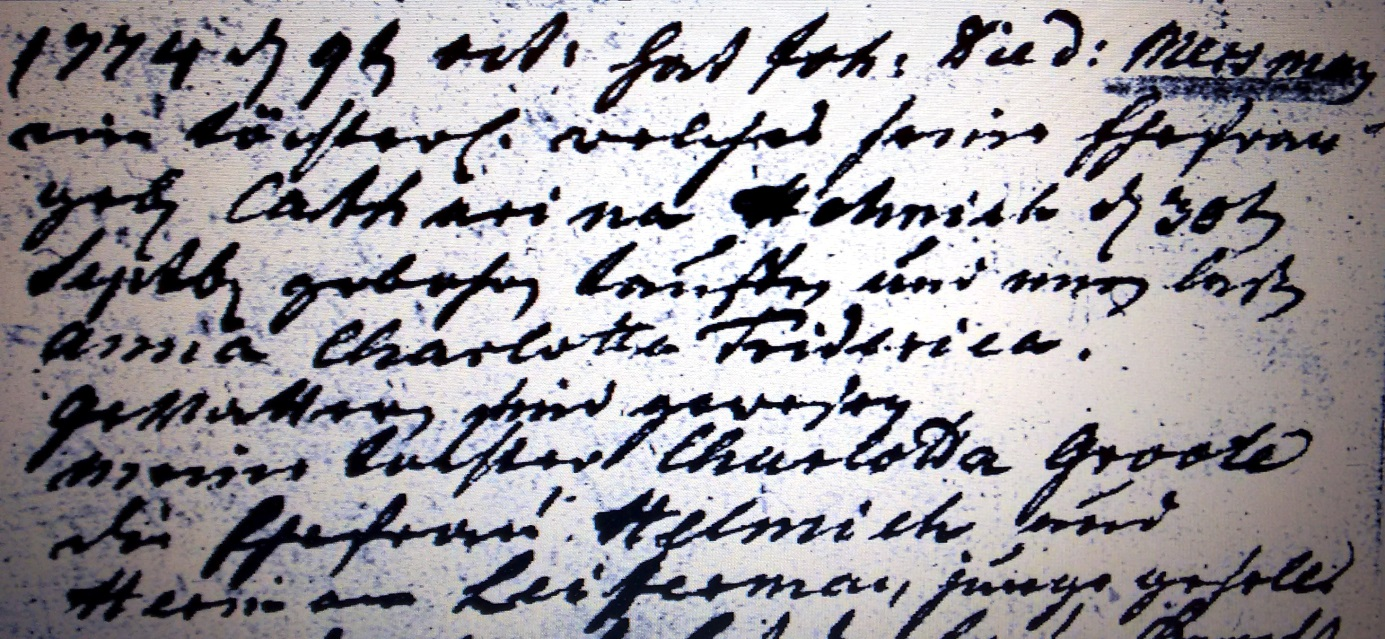 1774 d 9t oct: hat Joh: Died: Mersman
ein töchterl. welches seine Ehefrau
geb Catharina Helmich d 30t
Septb gebohren tauffen und nennen laßen
Anna Charlotta Friderica.
Gevattern sind gewesen
meine tochter Charlotta Groote
die Ehefrau Helmich und
Herman Leiferman, junge geselle